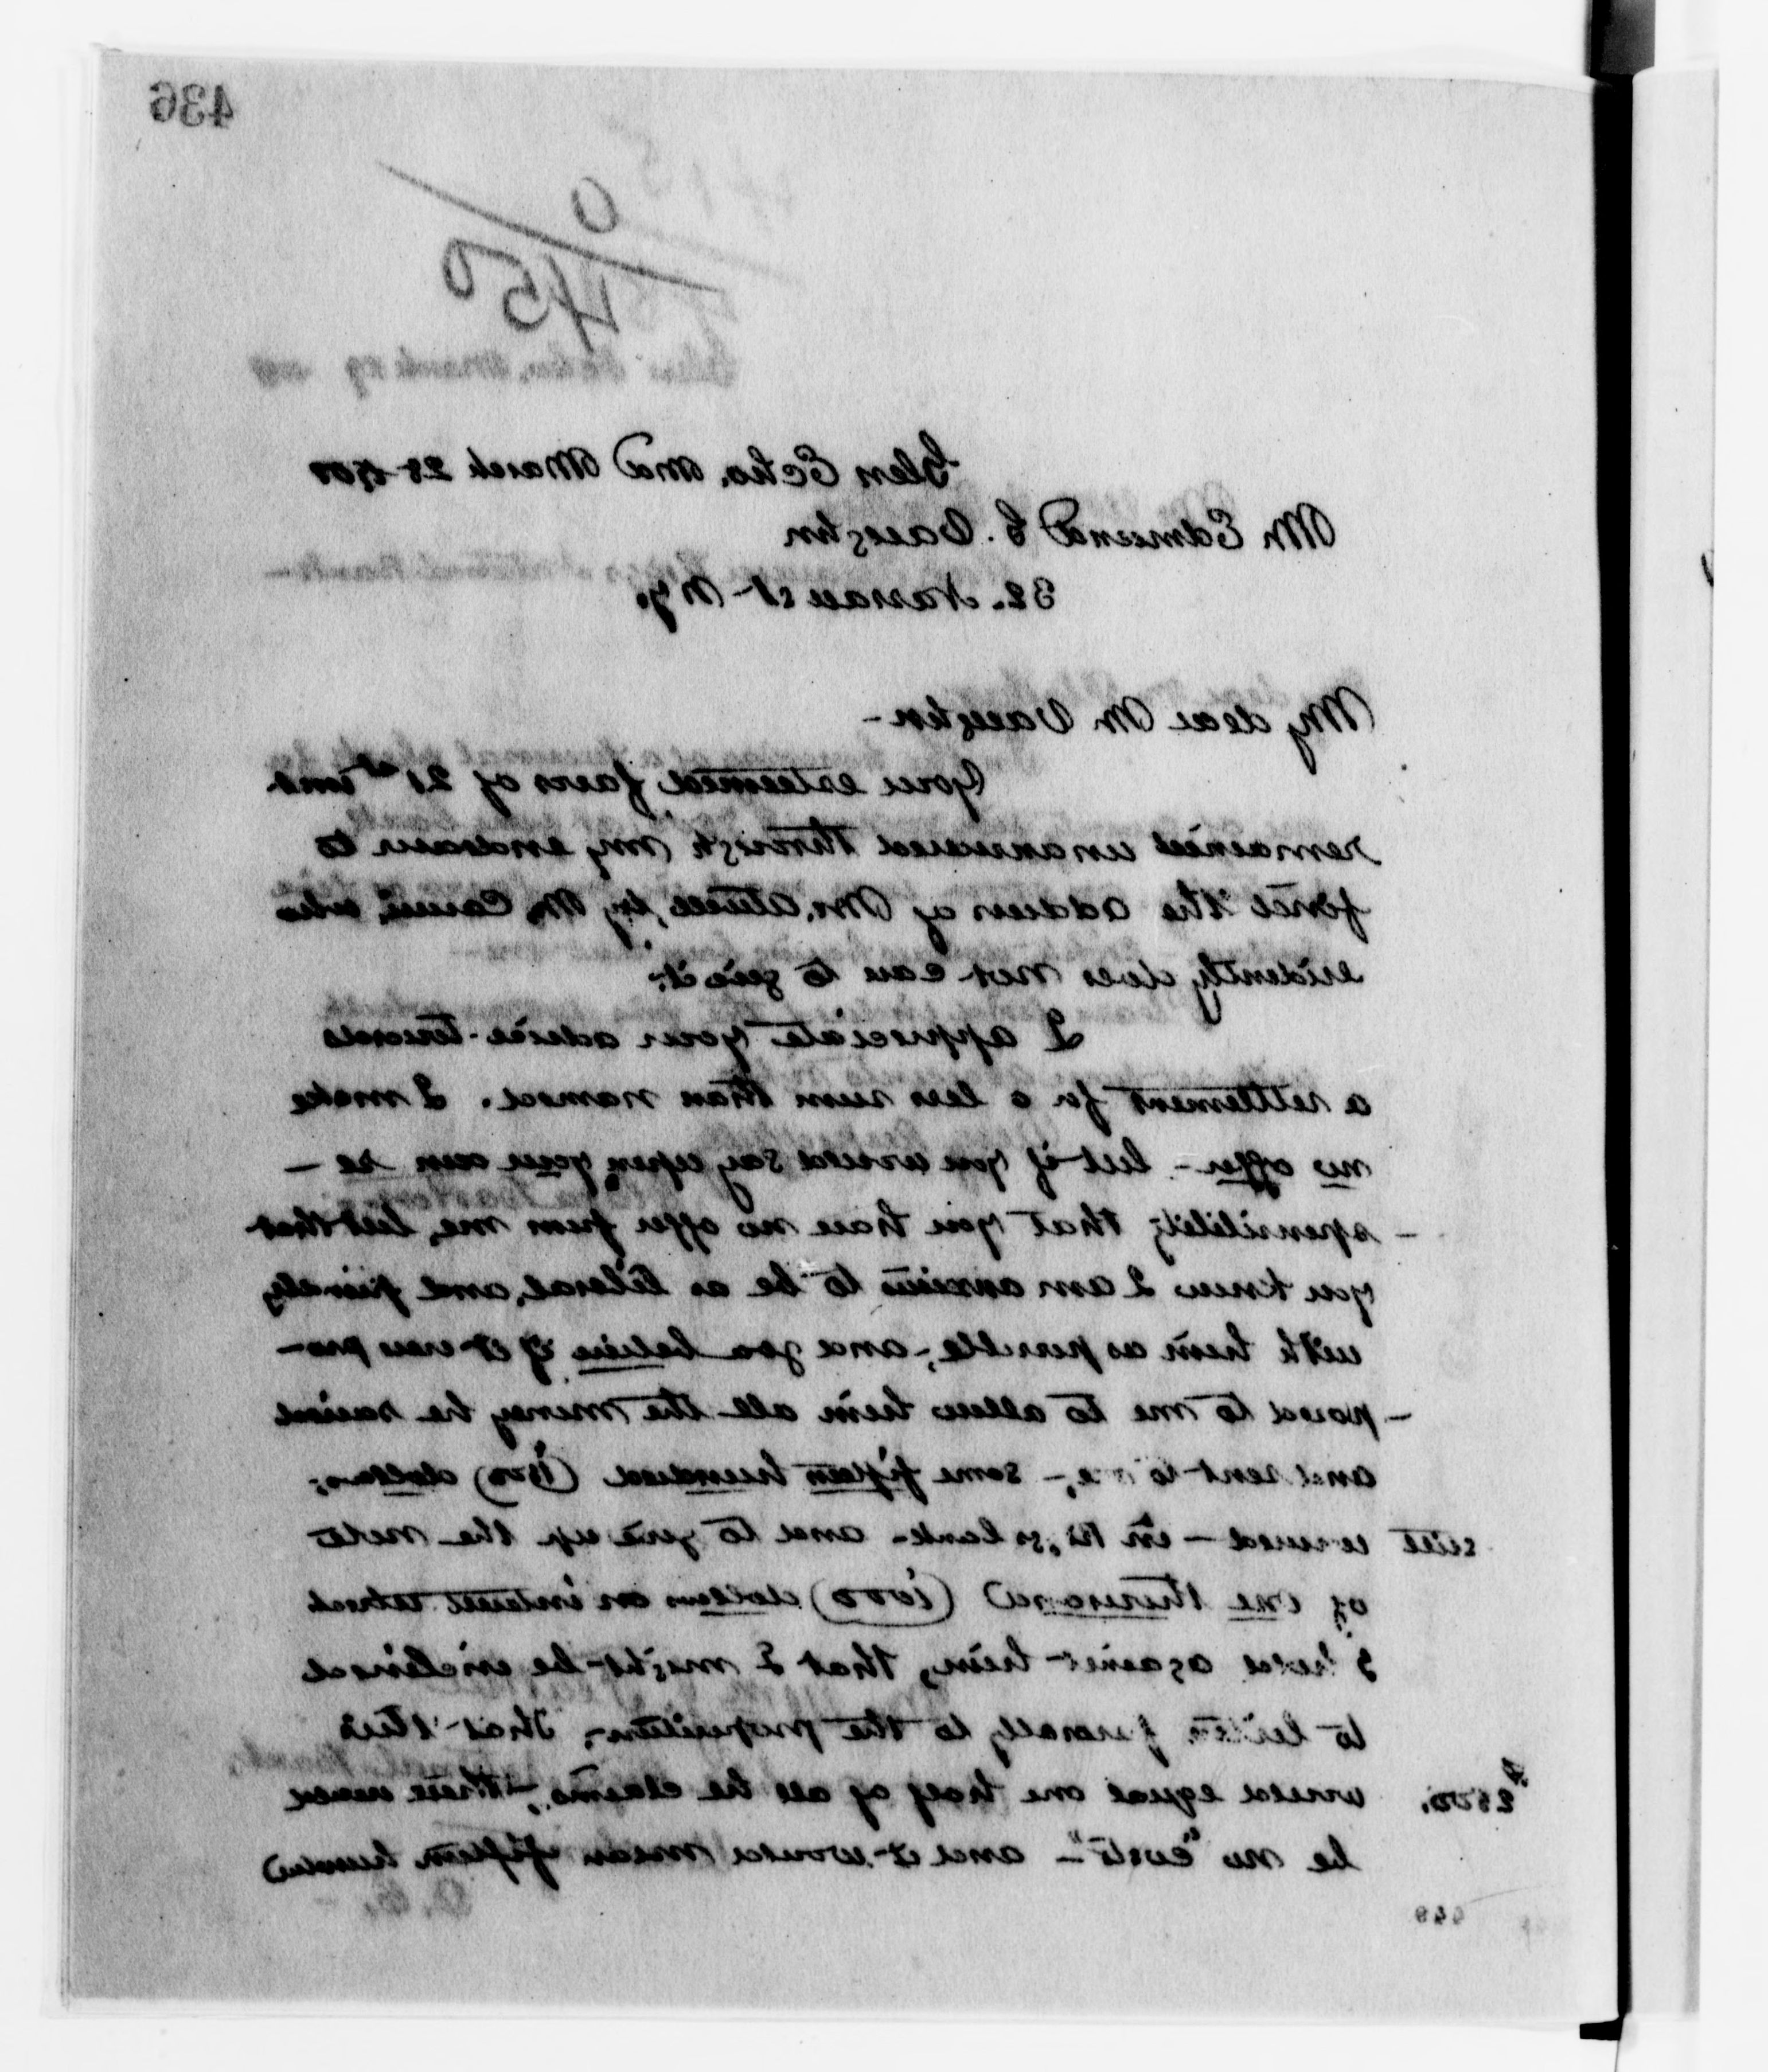 436
0
450
Glen Echo, Md March 28 1908
Mr Edmund E. Vaughn
32. Nassau st - N.y.
My dear Mr Vaughn -
Your esteemed favor of 21st inst
remained unanswered through my endeavor to
find the address of Mr. by Mr who
evidently does not care to give it.
I appreciate your advice towards
a settlement for a less sum than named. I make
no offer - but if you would say, upon your own re -
- sponsibility that you have no offer from me, but that
you know I am anxious to be as liberal, and friendly
with him as possible, - and you believe if it was pro -
- posed to me to allow him all the money he
and sent to me, - some fifteen hundred (1500) dollars;
still unused - in Riggs bank - and to give up the note
of one thousand (1000) dollars on interest which
I hold against him, that I might be inclined
to listen to the proposition, - that this
2500. would equal one half of all he claims, - there
be no "costs" - and it would mean fifteen hundred
449